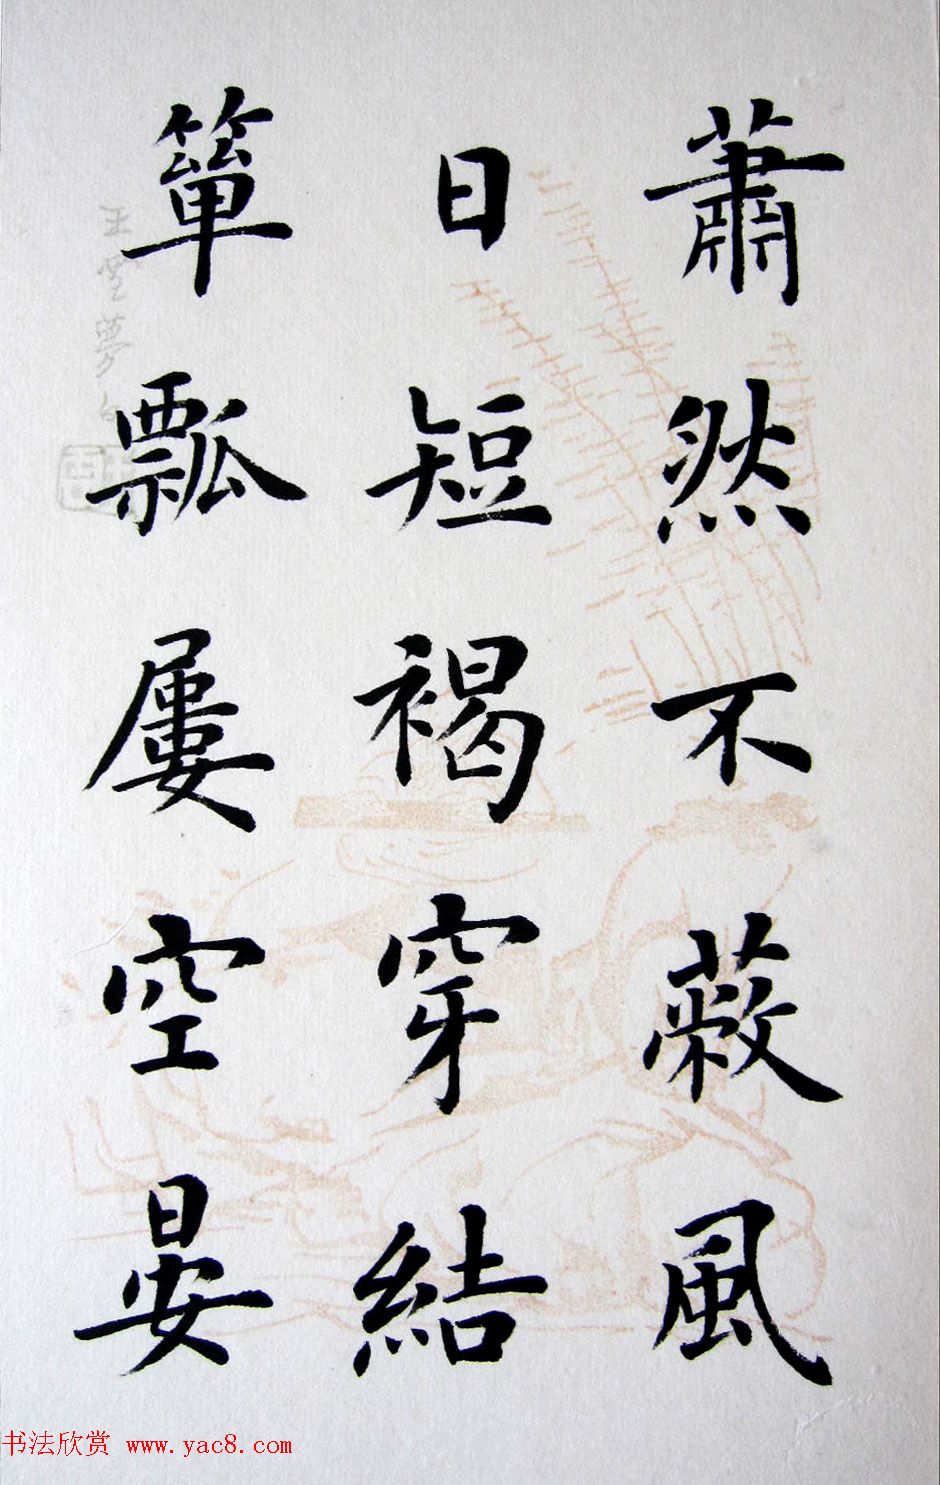 蕭然不蔽風
日短褐穿結
簞瓢屢空晏
书法欣赏 www.yac8.com